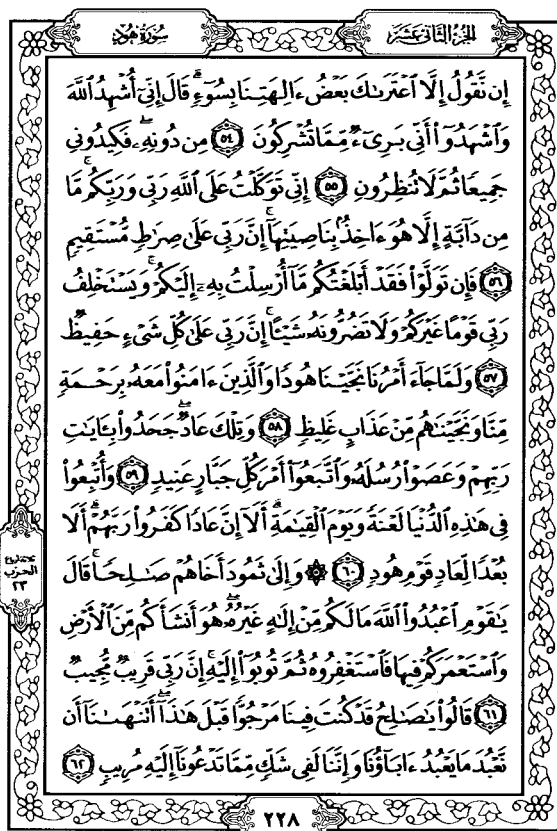 سُورَةُ هُودٍ
الجزء الثاني عشر
إِن نَّقُولُ إِلَّا ٱعْتَرَىٰكَ بَعْضُ ءَالِهَتِنَا بِسُوٓءٍ ۗ قَالَ إِنِّىٓ أُشْهِدُ ٱللَّهَ
وَٱشْهَدُوٓا۟ أَنِّى بَرِىٓءٌ مِّمَّا تُشْرِكُونَ ٥٤ مِن دُونِهِۦ ۖ فَكِيدُونِى
جَمِيعًا ثُمَّ لَا تُنظِرُونِ ٥٥ إِنِّى تَوَكَّلْتُ عَلَى ٱللَّهِ رَبِّى وَرَبِّكُم ۚ مَّا
مِن دَآبَّةٍ إِلَّا هُوَ ءَاخِذٌۢ بِنَاصِيَتِهَآ ۚ إِنَّ رَبِّى عَلَىٰ صِرَٰطٍ مُّسْتَقِيمٍ
٥٦ فَإِن تَوَلَّوْا۟ فَقَدْ أَبْلَغْتُكُم مَّآ أُرْسِلْتُ بِهِۦٓ إِلَيْكُمْ ۚ وَيَسْتَخْلِفُ
رَبِّى قَوْمًا غَيْرَكُمْ وَلَا تَضُرُّونَهُۥ شَيْـًٔا ۚ إِنَّ رَبِّى عَلَىٰ كُلِّ شَىْءٍ حَفِيظٌ
٥٧ وَلَمَّا جَآءَ أَمْرُنَا نَجَّيْنَا هُودًا وَٱلَّذِينَ ءَامَنُوا۟ مَعَهُۥ بِرَحْمَةٍ
مِّنَّا وَنَجَّيْنَٰهُم مِّنْ عَذَابٍ غَلِيظٍ ٥٨ وَتِلْكَ عَادٌ ۖ جَحَدُوا۟ بِـَٔايَٰتِ
رَبِّهِمْ وَعَصَوْا۟ رُسُلَهُۥ وَٱتَّبَعُوٓا۟ أَمْرَ كُلِّ جَبَّارٍ عَنِيدٍ ٥٩ وَأُتْبِعُوا۟
فِى هَٰذِهِ ٱلدُّنْيَا لَعْنَةً وَيَوْمَ ٱلْقِيَٰمَةِ ۗ أَلَآ إِنَّ عَادًا كَفَرُوا۟ رَبَّهُمْ ۗ أَلَا
بُعْدًا لِّعَادٍ قَوْمِ هُودٍ ٦٠ ۞ وَإِلَىٰ ثَمُودَ أَخَاهُمْ صَٰلِحًا ۚ قَالَ
يَٰقَوْمِ ٱعْبُدُوا۟ ٱللَّهَ مَا لَكُم مِّنْ إِلَٰهٍ غَيْرُهُۥ ۖ هُوَ أَنشَأَكُم مِّنَ ٱلْأَرْضِ
وَٱسْتَعْمَرَكُمْ فِيهَا فَٱسْتَغْفِرُوهُ ثُمَّ تُوبُوٓا۟ إِلَيْهِ ۚ إِنَّ رَبِّى قَرِيبٌ مُّجِيبٌ
٦١ قَالُوا۟ يَٰصَٰلِحُ قَدْ كُنتَ فِينَا مَرْجُوًّا قَبْلَ هَٰذَآ ۖ أَتَنْهَىٰنَآ أَن
نَّعْبُدَ مَا يَعْبُدُ ءَابَآؤُنَا وَإِنَّنَا لَفِى شَكٍّ مِّمَّا تَدْعُونَآ إِلَيْهِ مُرِيبٍ ٦٢
الحزب
٢٣
٢٢٨